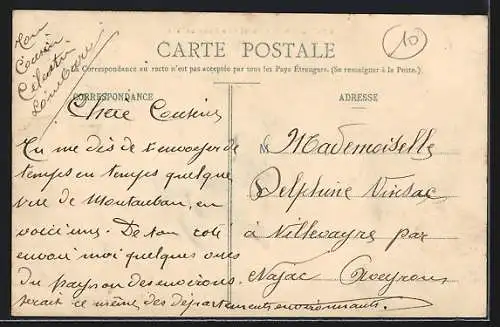 Ton
Cousin
Celestin
10
CARTE POSTALE
La Correspondance au recto n'est pas acceptée par tous les Pays Étrangers. (Se renseigner à la Poste.)
CORRESPONDANCE
Chère Cousine
Tu me dis de t'envoyer de
temps en temps quelque
vue de Montauban, en
voici une. De ton coté
envoi moi quelques unes
du pays ou des environs.
serait ce même des départements environnants.
ADRESSE
M Mademoiselle
Delphine Vinsac
à Villevayre par
Najac Aveyron